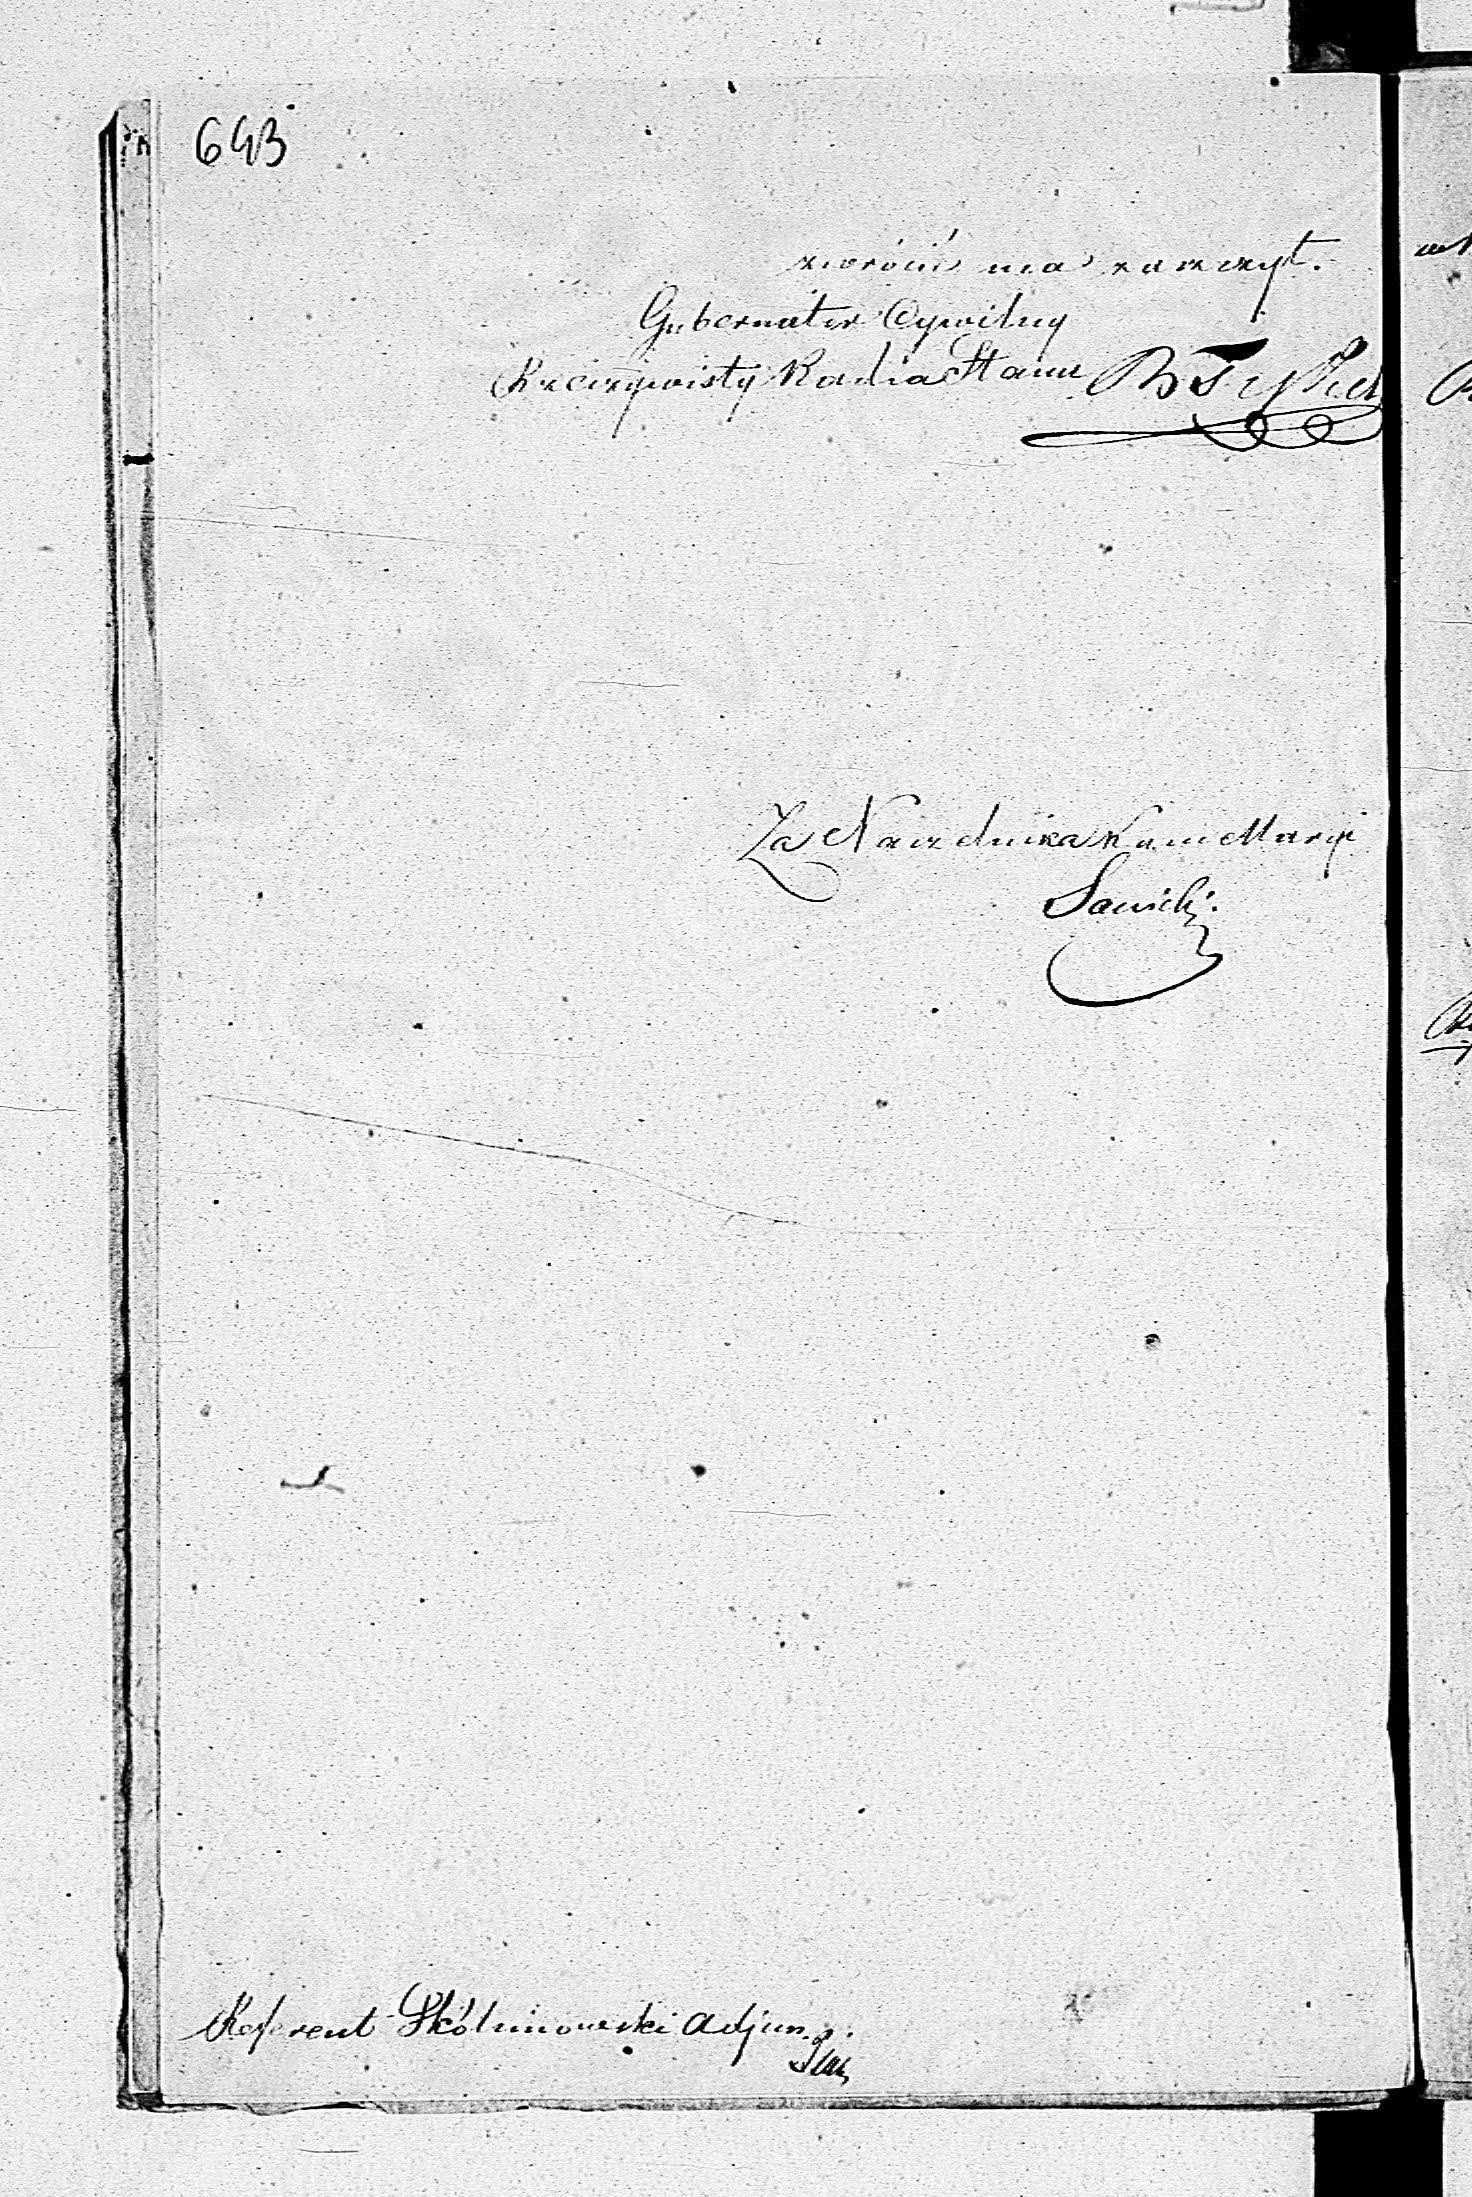 643
zwrócić ma zaszczyt.
Gubernator Cywilny
Rzeczywisty Radca Stanu
Za Naczelnika Kancellaryi
Sawicki.
Referent Skólimowski Adjun.